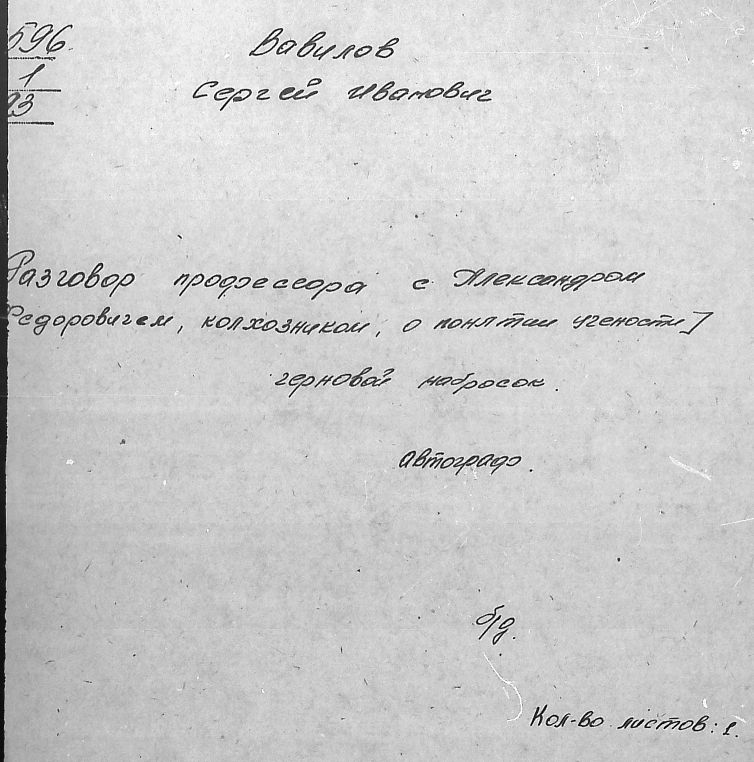 596.
1
23
Вавилов
Сергей Иванович
Разговор профессора с Александром
Федоровичем, колхозником, о понятии учености]
черновой набросок.
автограф.
б/д.
Кол-во листов: 1.